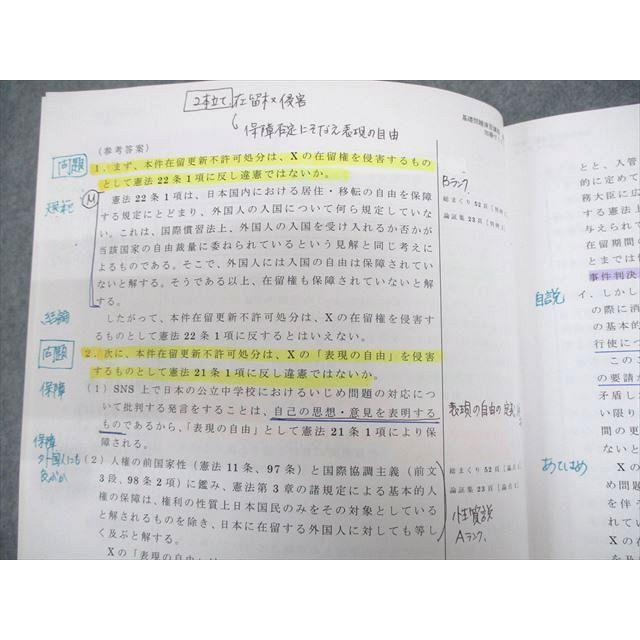 2本立て 在留权侵害
保障否定にそなえ表現の自由
(参考答案)
問題
1.まず、本件在留更新不許可処分は、Xの在留権を侵害するもの
として憲法22条1項に反し違憲ではないか。
規範
M
憲法22条1項は、日本国内における居住・移転の自由を保障
する規定にとどまり、外国人の入国について何ら規定していな
い。これは、国際慣習法上、外国人の入国を受け入れるか否かが
当該国家の自由裁量に委ねられているという見解と同じ考えに
よるものである。そこで、外国人には入国の自由は保障されてい
ないと解する。そうである以上、在留権も保障されていないと解
する。
結論
したがって、本件在留更新不許可処分は、Xの在留権を侵害す
るものとして憲法22条1項に反するとはいえない。
問題
2.次に、本件在留更新不許可処分は、Xの「表現の自由」を侵害
するものとして憲法21条1項に反し違憲ではないか。
保障
(1)SNS上で日本の公立中学校におけるいじめ問題の対応につ
いて批判する発言をすることは、自己の思想・意見を表明する
ものであるから、「表現の自由」として憲法21条1項により保
障される。
保障
外国人にも
及ぶか
(2)人権の前国家性(憲法11条、97条)と国際協調主義(前文
3段、98条2項)に鑑み、憲法第3章の諸規定による基本的人
権の保障は、権利の性質上日本国民のみをその対象としている
と解されるものを除き、日本に在留する外国人に対しても等し
く及ぶと解する。
Xの「表現の自由」は
Bランク
総まくり52頁
論証集23頁
表現の自由の定義
総まくり52頁[論点1]
論証集23頁[論点1]
性質説
Aランク
基礎問題演習講座
とと、入管
的に定めて
務大臣に広
する憲法上
与えられて
在留期間
とまでは
事件判決
自説
イ.しかし
の際に消
の基本的
行使につ
このこ
の要請が
矛盾し
い限り
間の更
ないと
あてはめ
Xの
め問題
を伴う
れてい
Xの在